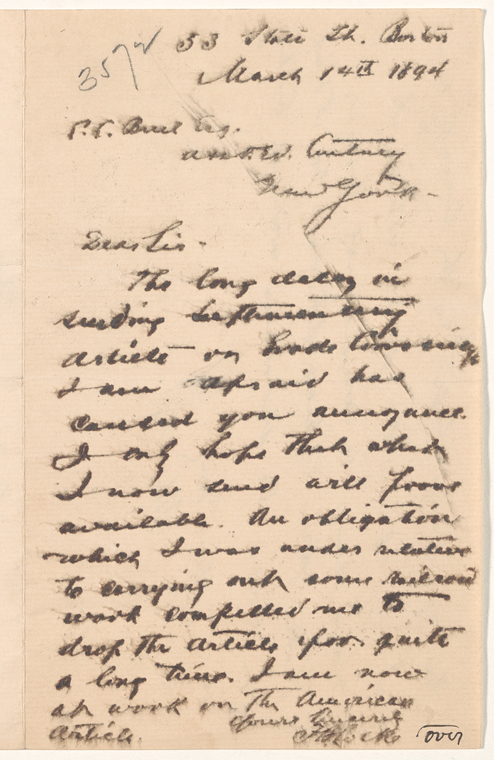 357
53 State St. Boston
March 14th 1894
C. C. Buel Esq.
Asst. Ed. Century
New York -
Dear Sir -
The long delay in
sending
article on Grade Crossings
I am afraid has
caused you annoyance.
I only hope that what
I now send will prove
available. An obligation
which I was under relative
to carrying out some railroad
work compelled me to
drop the article for quite
a long time. I am now
at work on the American
Article. Yours sincerely
over